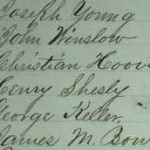 Joseph Young
John Winslow
Christian Hoov
Henry Shesly
George Keller
James M. Bow